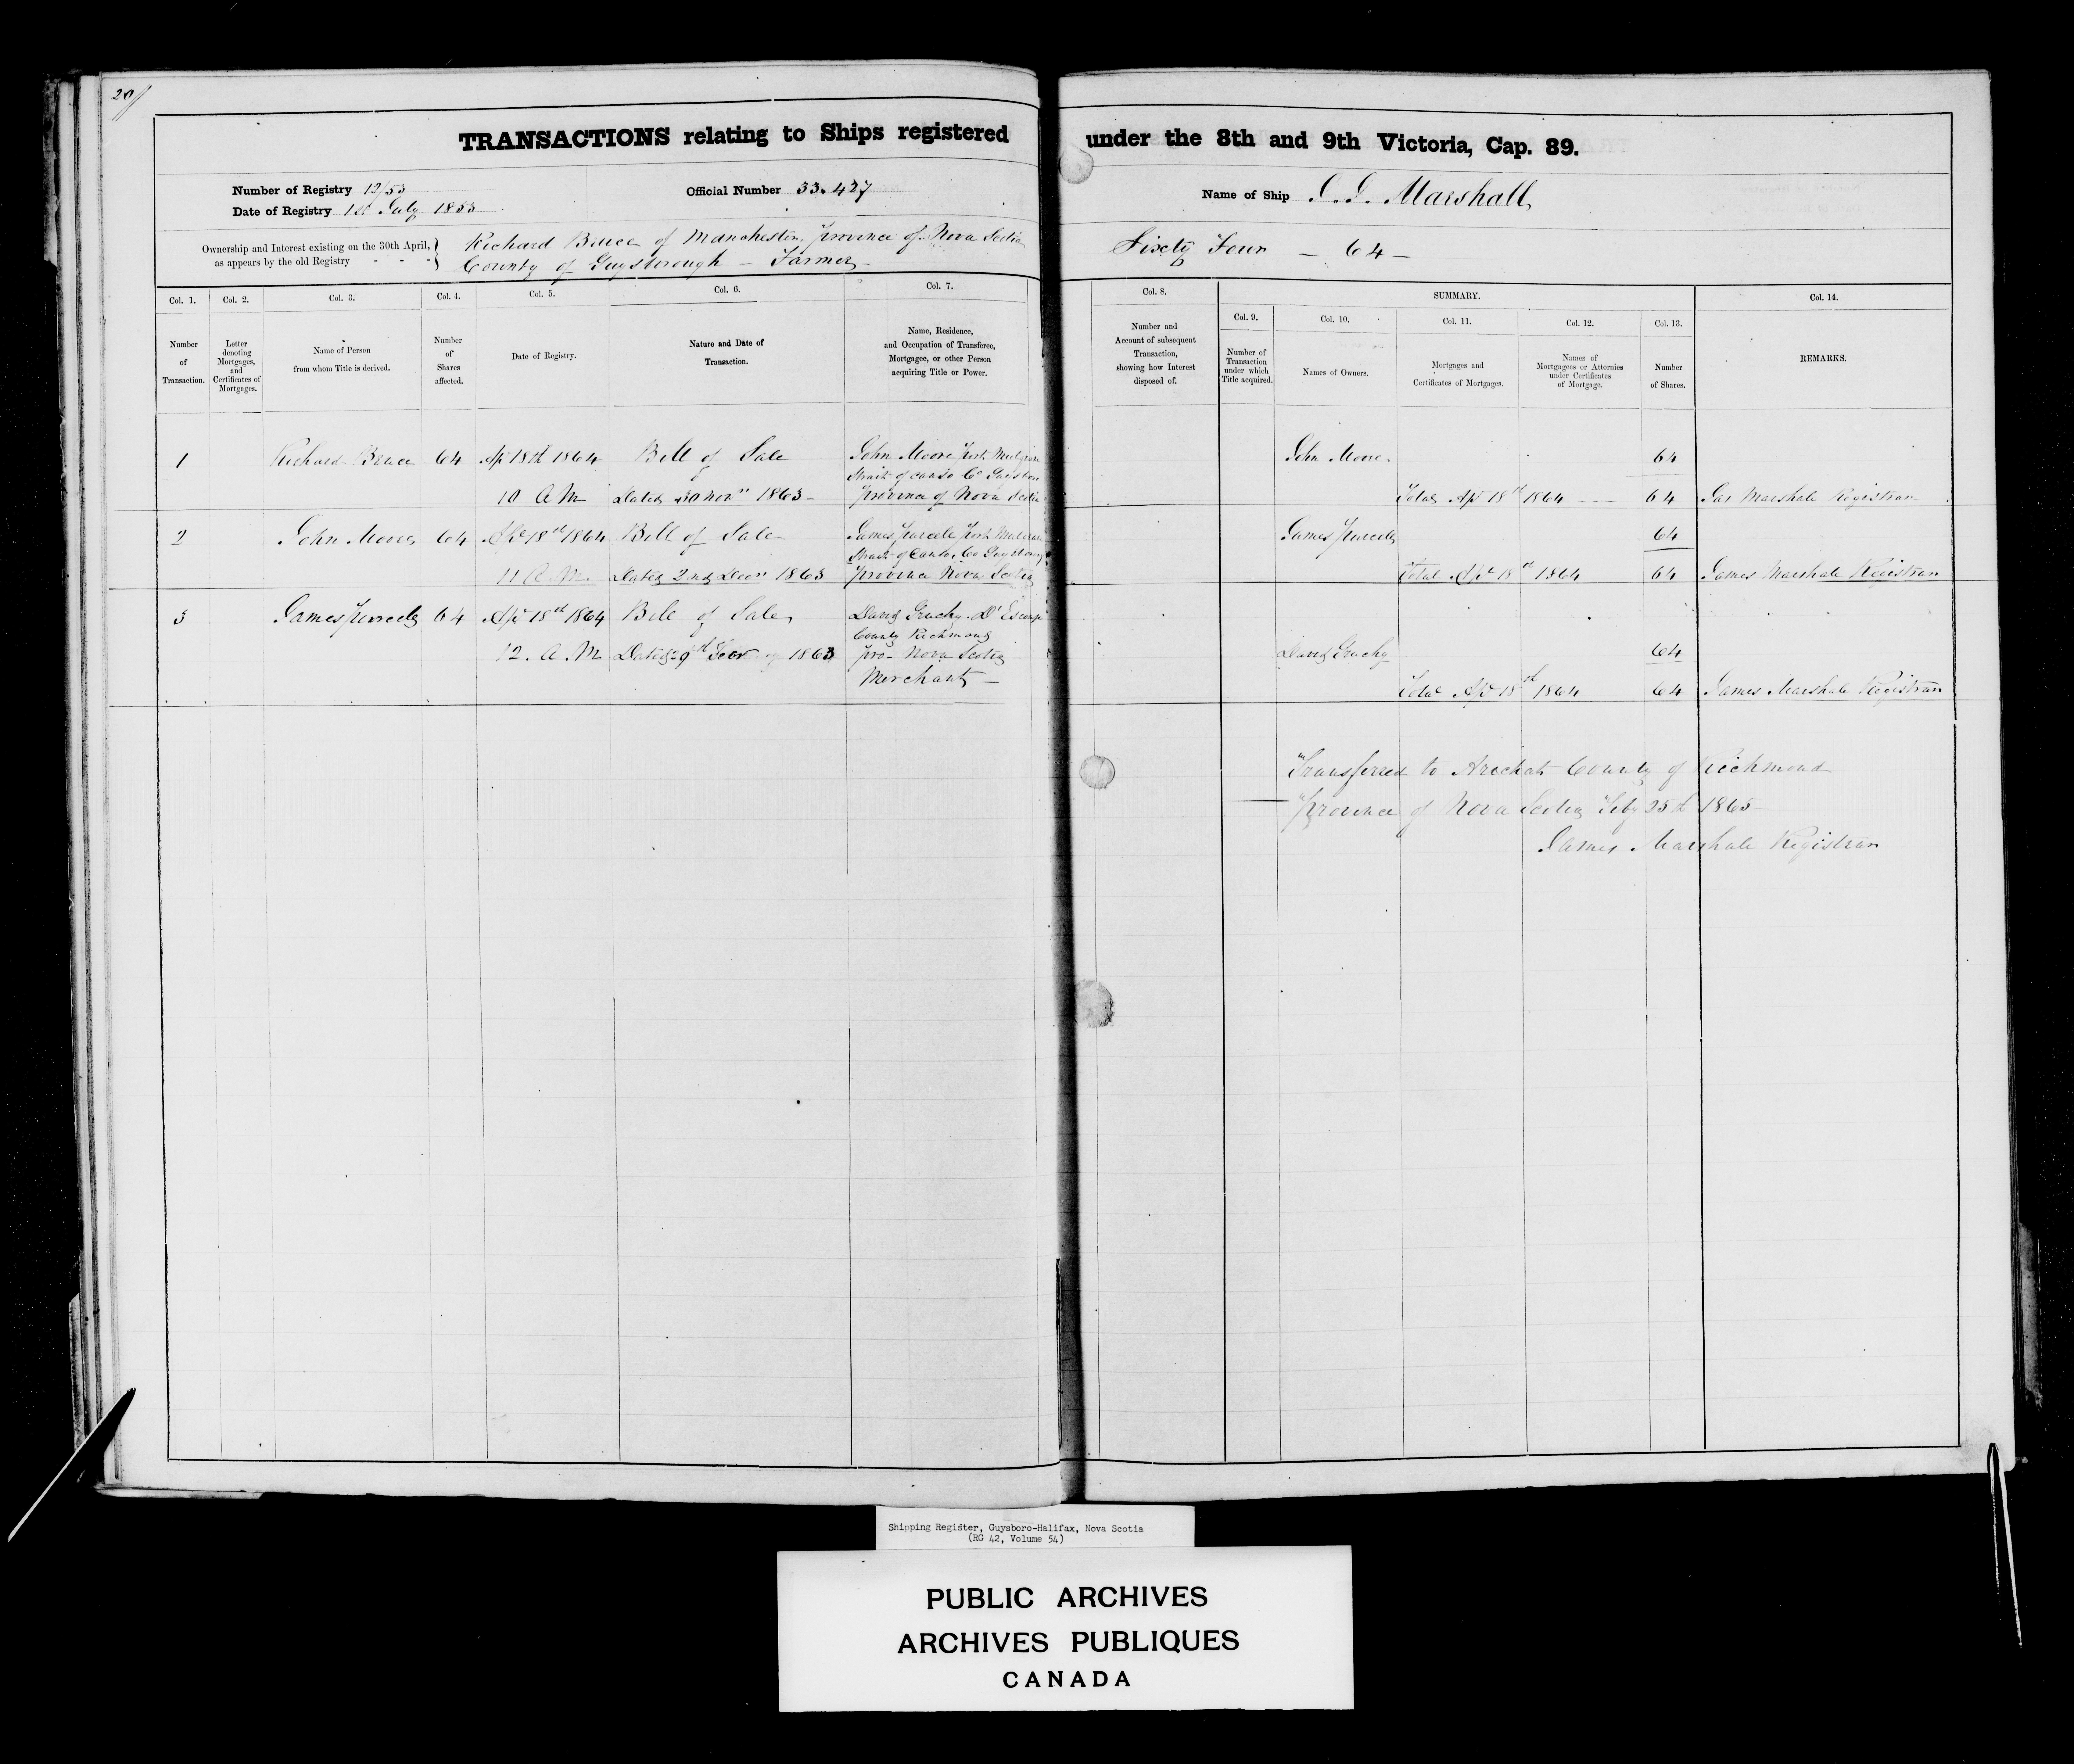 20/
TRANSACTIONS relating to Ships registered under the 8th and 9th Victoria, Cap. 89.
Number of Registry 12/53
Official Number 33.437
Name of Ship J. J. Marshall
Date of Registry 1st July 1853
Ownership and Interest existing on the 30th April, as appears by the old Registry - - -
Richard Bruce of Manchester, province of Nova Scotia
County of Guysborough — Farmer —
Sixty Four — 64 —
Col. 1. Col. 2. Col. 3. Col. 4. Col. 5. Col. 6. Col. 7. Col. 8. SUMMARY. Col. 14.
Col. 9. Col. 10. Col. 11. Col. 12. Col. 13.
Number of Transaction.
Letter denoting Mortgages, and Certificates of Mortgages.
Name of Person from whom Title is derived.
Number of Shares affected.
Date of Registry.
Nature and Date of Transaction.
Name, Residence, and Occupation of Transferee, Mortgagee, or other Person acquiring Title or Power.
Number and Account of subsequent Transaction, showing how Interest disposed of.
Number of Transaction under which Title acquired.
Names of Owners.
Mortgages and Certificates of Mortgages.
Names of Mortgagees or Attornies under Certificates of Mortgage.
Number of Shares.
REMARKS.
1 Richard Bruce 64 Ap 18th 1864 Bill of Sale John Moore Port Mulgrave John Moore. 64
Strait of Canso Co Guysboro
10 A M Dated 30 Novr 1863 - province of Nova Scotia Total Apl 18th 1864 64 Jas Marshall Registrar
2 John Moore 64 Apl 18th 1864 Bill of Sale James Purcell Port Mulgrave James Purcell 64
Strait of Canso, Co Guysboro
11 A. M. Dated 2nd Decr 1863 province Nova Scotia Total Apl 18th 1864 64 James Marshall Registrar
3 James Purcell 64 Apl 18th 1864 Bill of Sale David Gruchy D'Escouse
County Richmond
12. A. M Dated 9th 1863 pro- Nova Scotia David Gruchy 64
Merchant — Total Apl 18th 1864 64 James Marshall Registrar
Transferred to Arichat County of Richmond
Province of Nova Scotia Feby 25th 1865
James Marshall Registrar
Shipping Register, Guysboro-Halifax, Nova Scotia
(RG 42, Volume 54)
PUBLIC ARCHIVES
ARCHIVES PUBLIQUES
CANADA